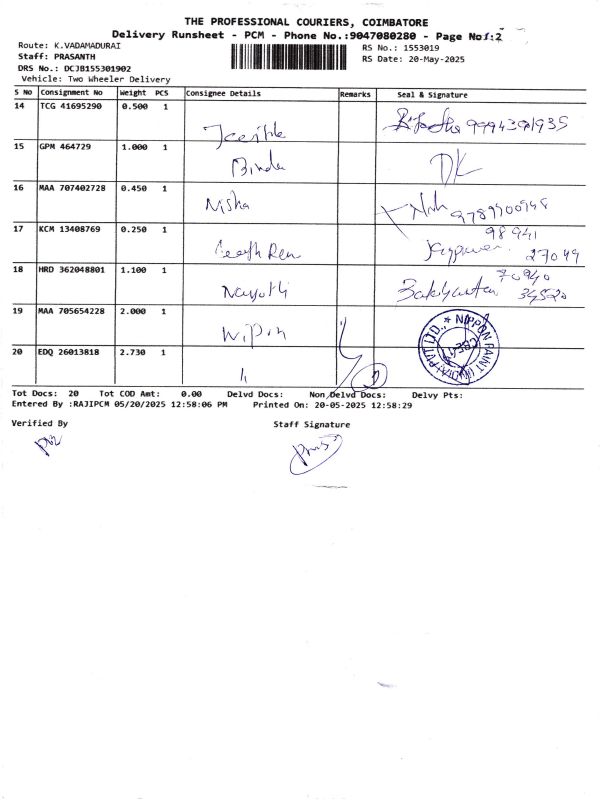 THE PROFESSIONAL COURIERS, COIMBATORE
Delivery Runsheet - PCM - Phone No.:9047080280 - Page No:2
Route: K.VADAMADURAI
RS No.: 1553019
Staff: PRASANTH
RS Date: 20-May-2025
DRS No.: DCJB155301902
Vehicle: Two Wheeler Delivery
S No Consignment No Weight PCS Consignee Details Remarks Seal & Signature
14 TCG 41695290 0.500 1
9994391935
15 GPM 464729 1.000 1
Binda
DK
16 MAA 707402728 0.450 1
Nisha
17 KCM 13408769 0.250 1
98941
27049
18 HRD 362048801 1.100 1
70940
34520
19 MAA 705654228 2.000 1
Nippon
NIPPON PAINT
20 EDQ 26013818 2.730 1
Tot Docs: 20 Tot COD Amt: 0.00 Delvd Docs: Non Delvd Docs: Delvy Pts:
Entered By :RAJIPCM 05/20/2025 12:58:06 PM Printed On: 20-05-2025 12:58:29
Verified By Staff Signature